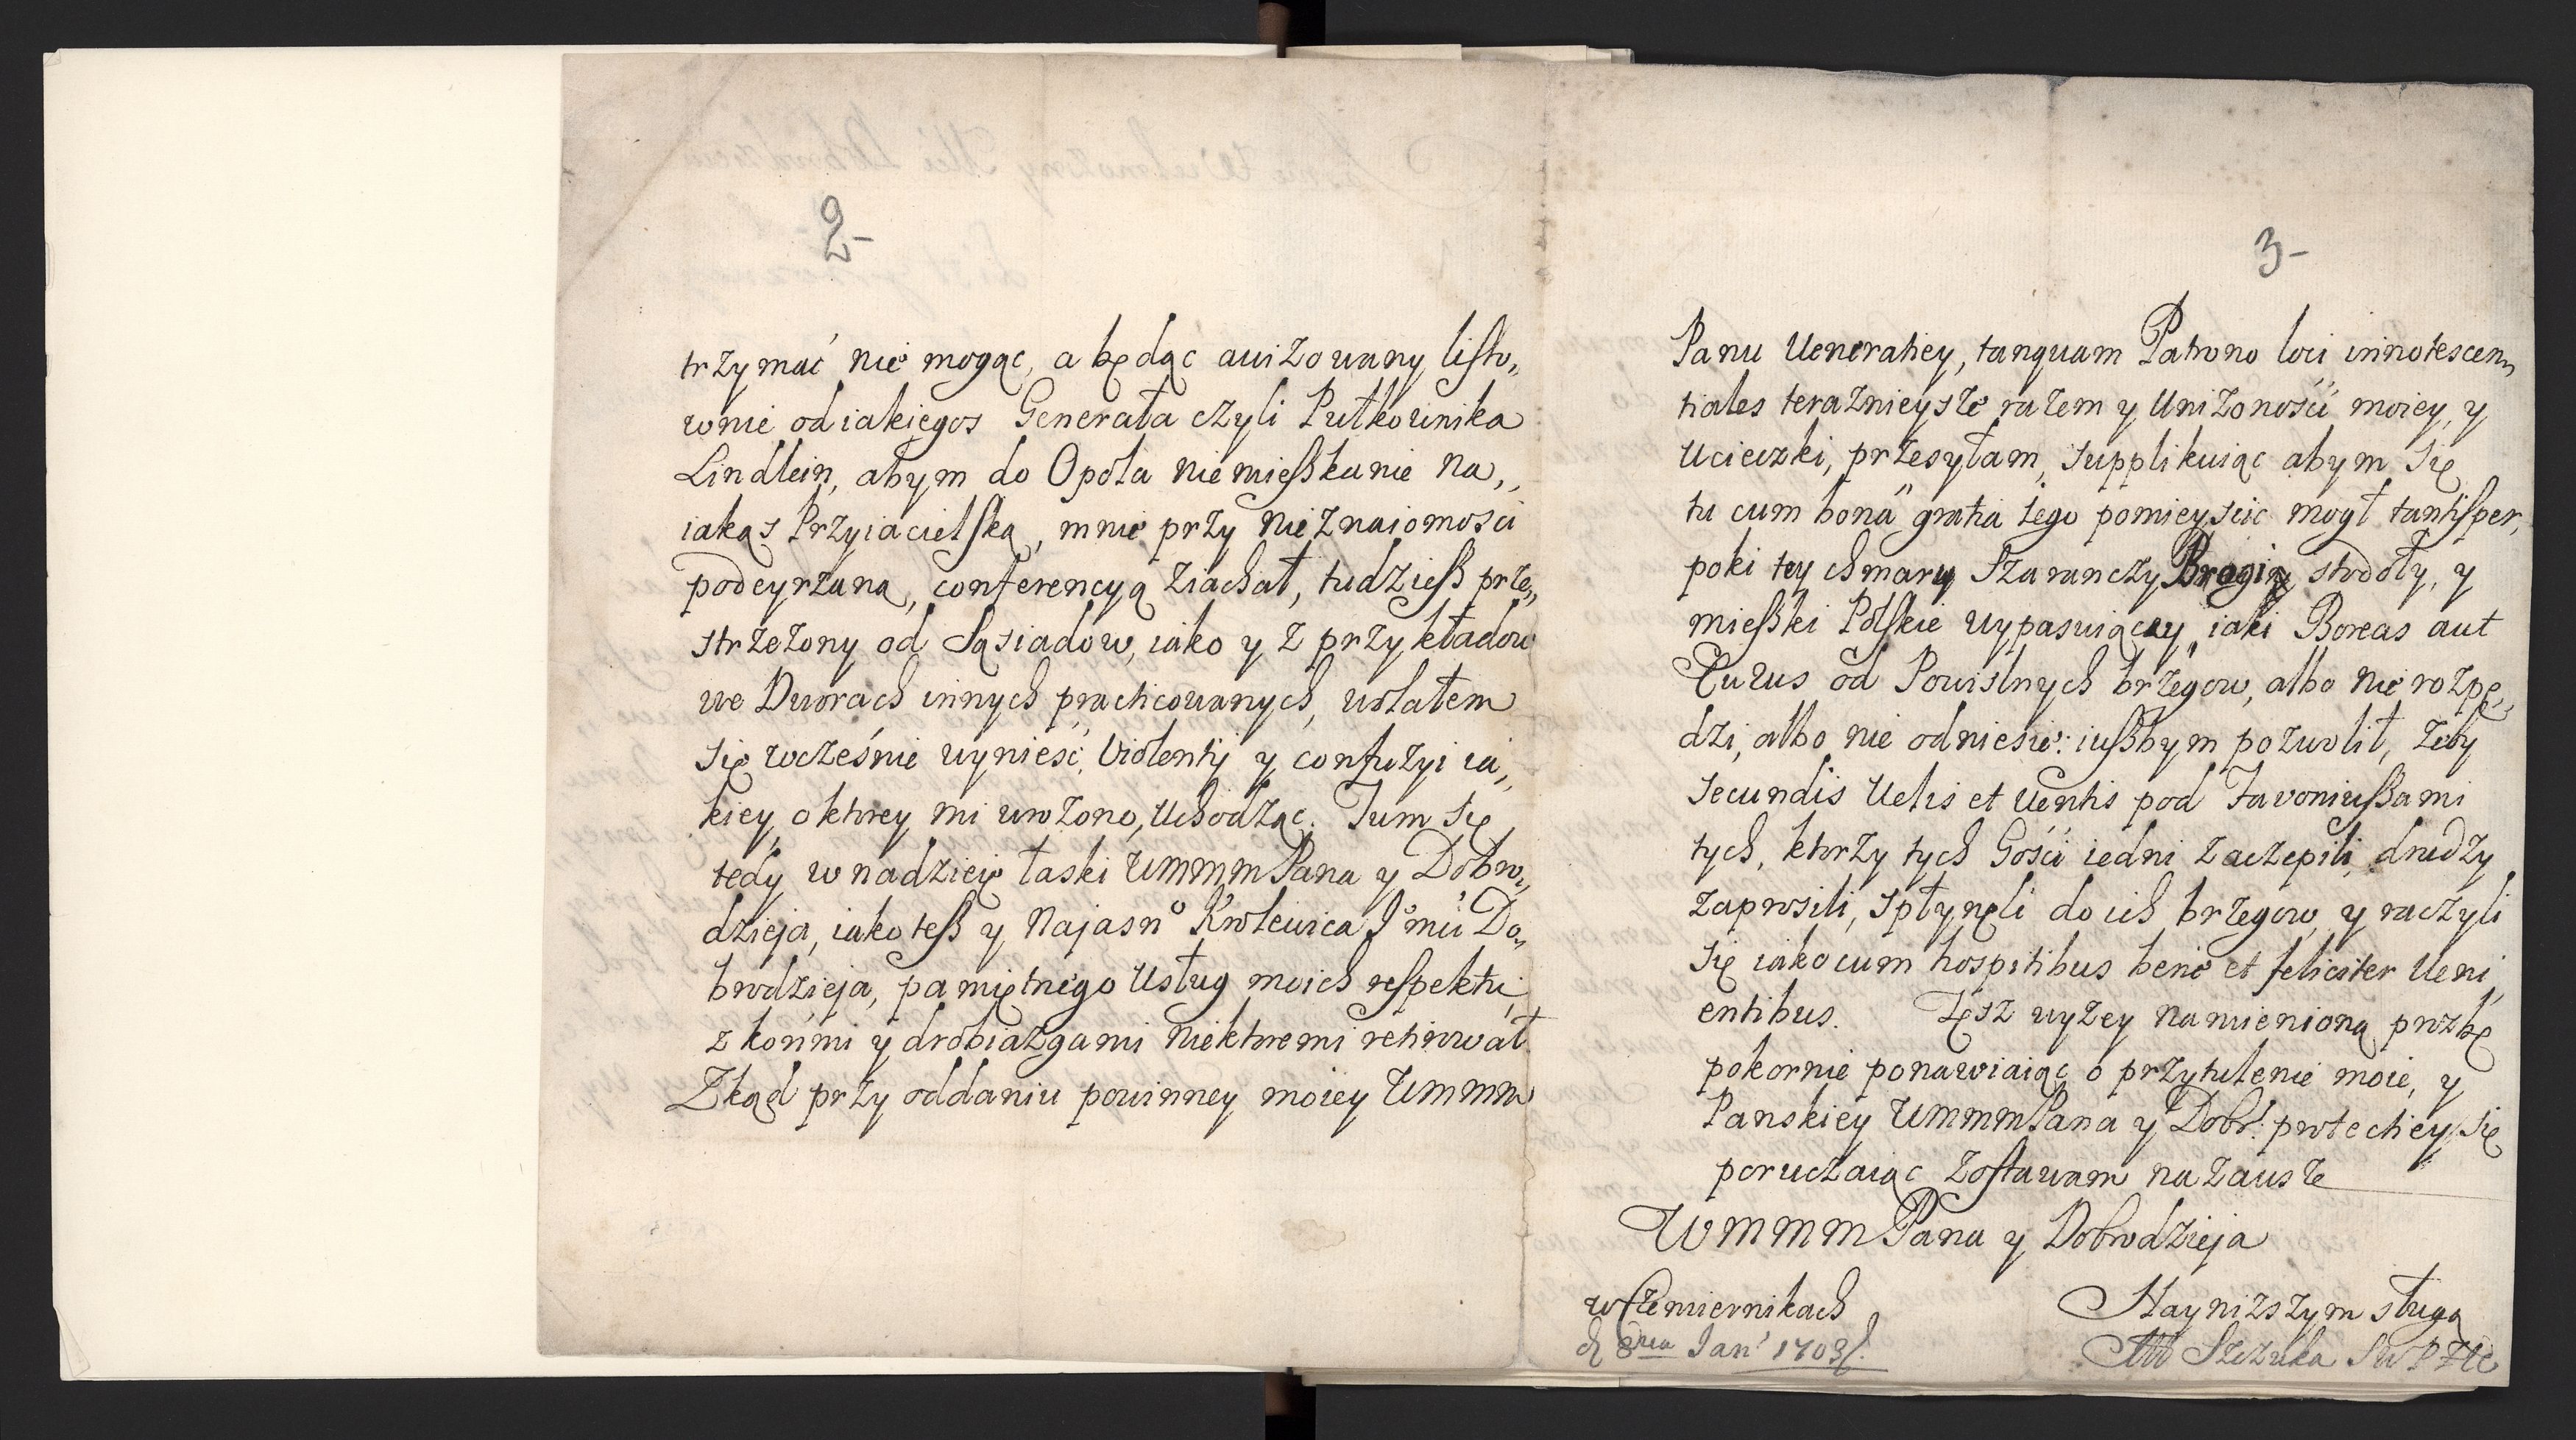 2-
trzymać nie mogąc, a będąc awizowany listo„
wnie od iakiegos Generała czyli Pułkownika
Lindlein, abym do Opola niemieszkanie na„
iakąs Przyiacielską, mnie przy nieznaiomosci
podeyrzaną, conferencyą ziachał, tudziesz prze„
strzeżony od Sąsiadow, iako y z przykładow
we Dworach innych practicowanych, wolałem
się wcześnie wynieść, Violentij y confuzyi ia„
kiey, o ktorey mi wrożono, uchodząc. Tum się
tedy w nadzieię łaski WMMMPana y Dobro„
dzieja, iako tesz y Najasn° Krolewica J°mći Do„
brodzieja, pamiętnego usług moich respektu,
z końmi y drobiazgami niektoremi retirował.
Zkąd przy oddaniu powinney moiey WMMM
3-
Panu Veneratiey, tanquam Patrono loci innotescen„
tiales teraznieysze razem y Uniżonośći moiey, y
Ucieczki, przesyłam, supplikuiąc abym się
tu cum bonâ gratia iego pomieyscic mogł tantisper,
poki tey chmary Szaranczy Brogi, stodoły, y
mieszki Polskie wypasuiącey, iaki Boreas aut
Eurus od Powislnych brzegow, albo nie rozpę„
dzi, albo nie odniesie: iuszbym pozwolił, żeby
secundis Velis et Ventis pod Favoniuszami
tych, ktorzy tych Gośći iedni zaczepili, drudzy
zaprosili, spłynęli do ich brzegow, y raczyli
się iako cum hospitibus benè et feliciter Veni„
entibus. Tęsz wyżey namienioną prozbę
pokornie ponawiaiąc o przytulenie moie, y
Panskiey WMMMPana y Dobr: protectiey się
poruczaiąc zostawam na zawsze
WMMMPana y Dobrodzieja
w Czemiernikach
d 8va Jan 1703.
Nayniższym sługą
Szczuka